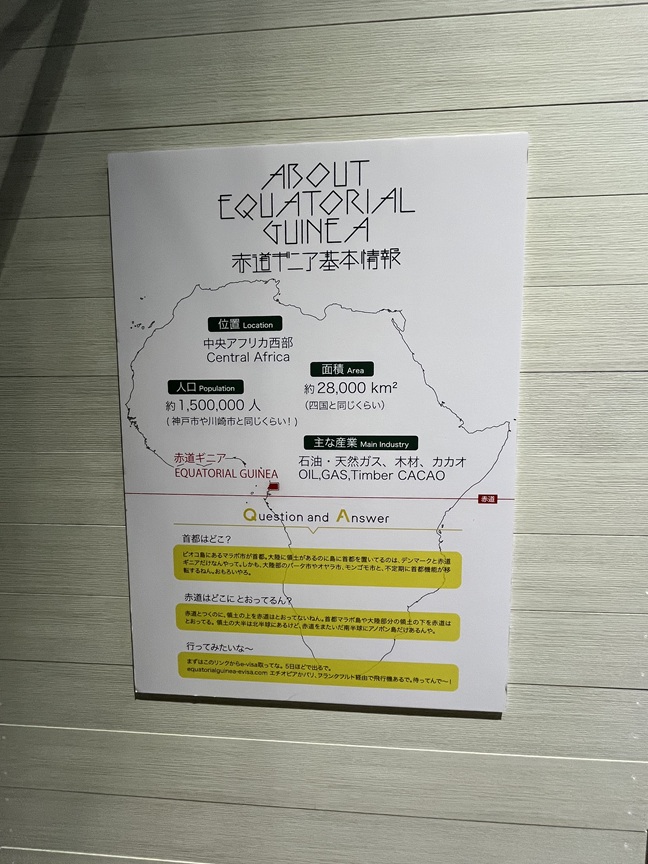 ABOUT
EQUATORIAL
GUINEA
赤道ギニア基本情報
位置 Location
中央アフリカ西部
Central Africa
面積 Area
約28,000 km²
（四国と同じくらい）
人口 Population
約1,500,000 人
( 神戸市や川崎市と同じくらい！)
主な産業 Main Industry
石油・天然ガス、木材、カカオ
OIL,GAS,Timber CACAO
赤道ギニア
EQUATORIAL GUINEA
赤道
Question and Answer
首都はどこ？
ビオコ島にあるマラボ市が首都。大陸に領土があるのに島に首都を置いてるのは、デンマークと赤道
ギニアだけなんやって。しかも、大陸部のバータ市やオヤラ市、モンゴモ市と、不定期に首都機能が移
転するねん。おもろいやろ。
赤道はどこにとおってるん？
赤道とつくのに、領土の上を赤道はとおってないねん。首都マラボ島や大陸部分の領土の下を赤道は
とおってる。領土の大半は北半球にあるけど、赤道をまたいだ南半球にアノボン島だけあるんや。
行ってみたいな〜
まずはこのリンクからe-visa取ってな。5日ほどで出るで。
equatorialguinea-evisa.com エチオピアかパリ、フランクフルト経由で飛行機あるで。待ってんで〜！